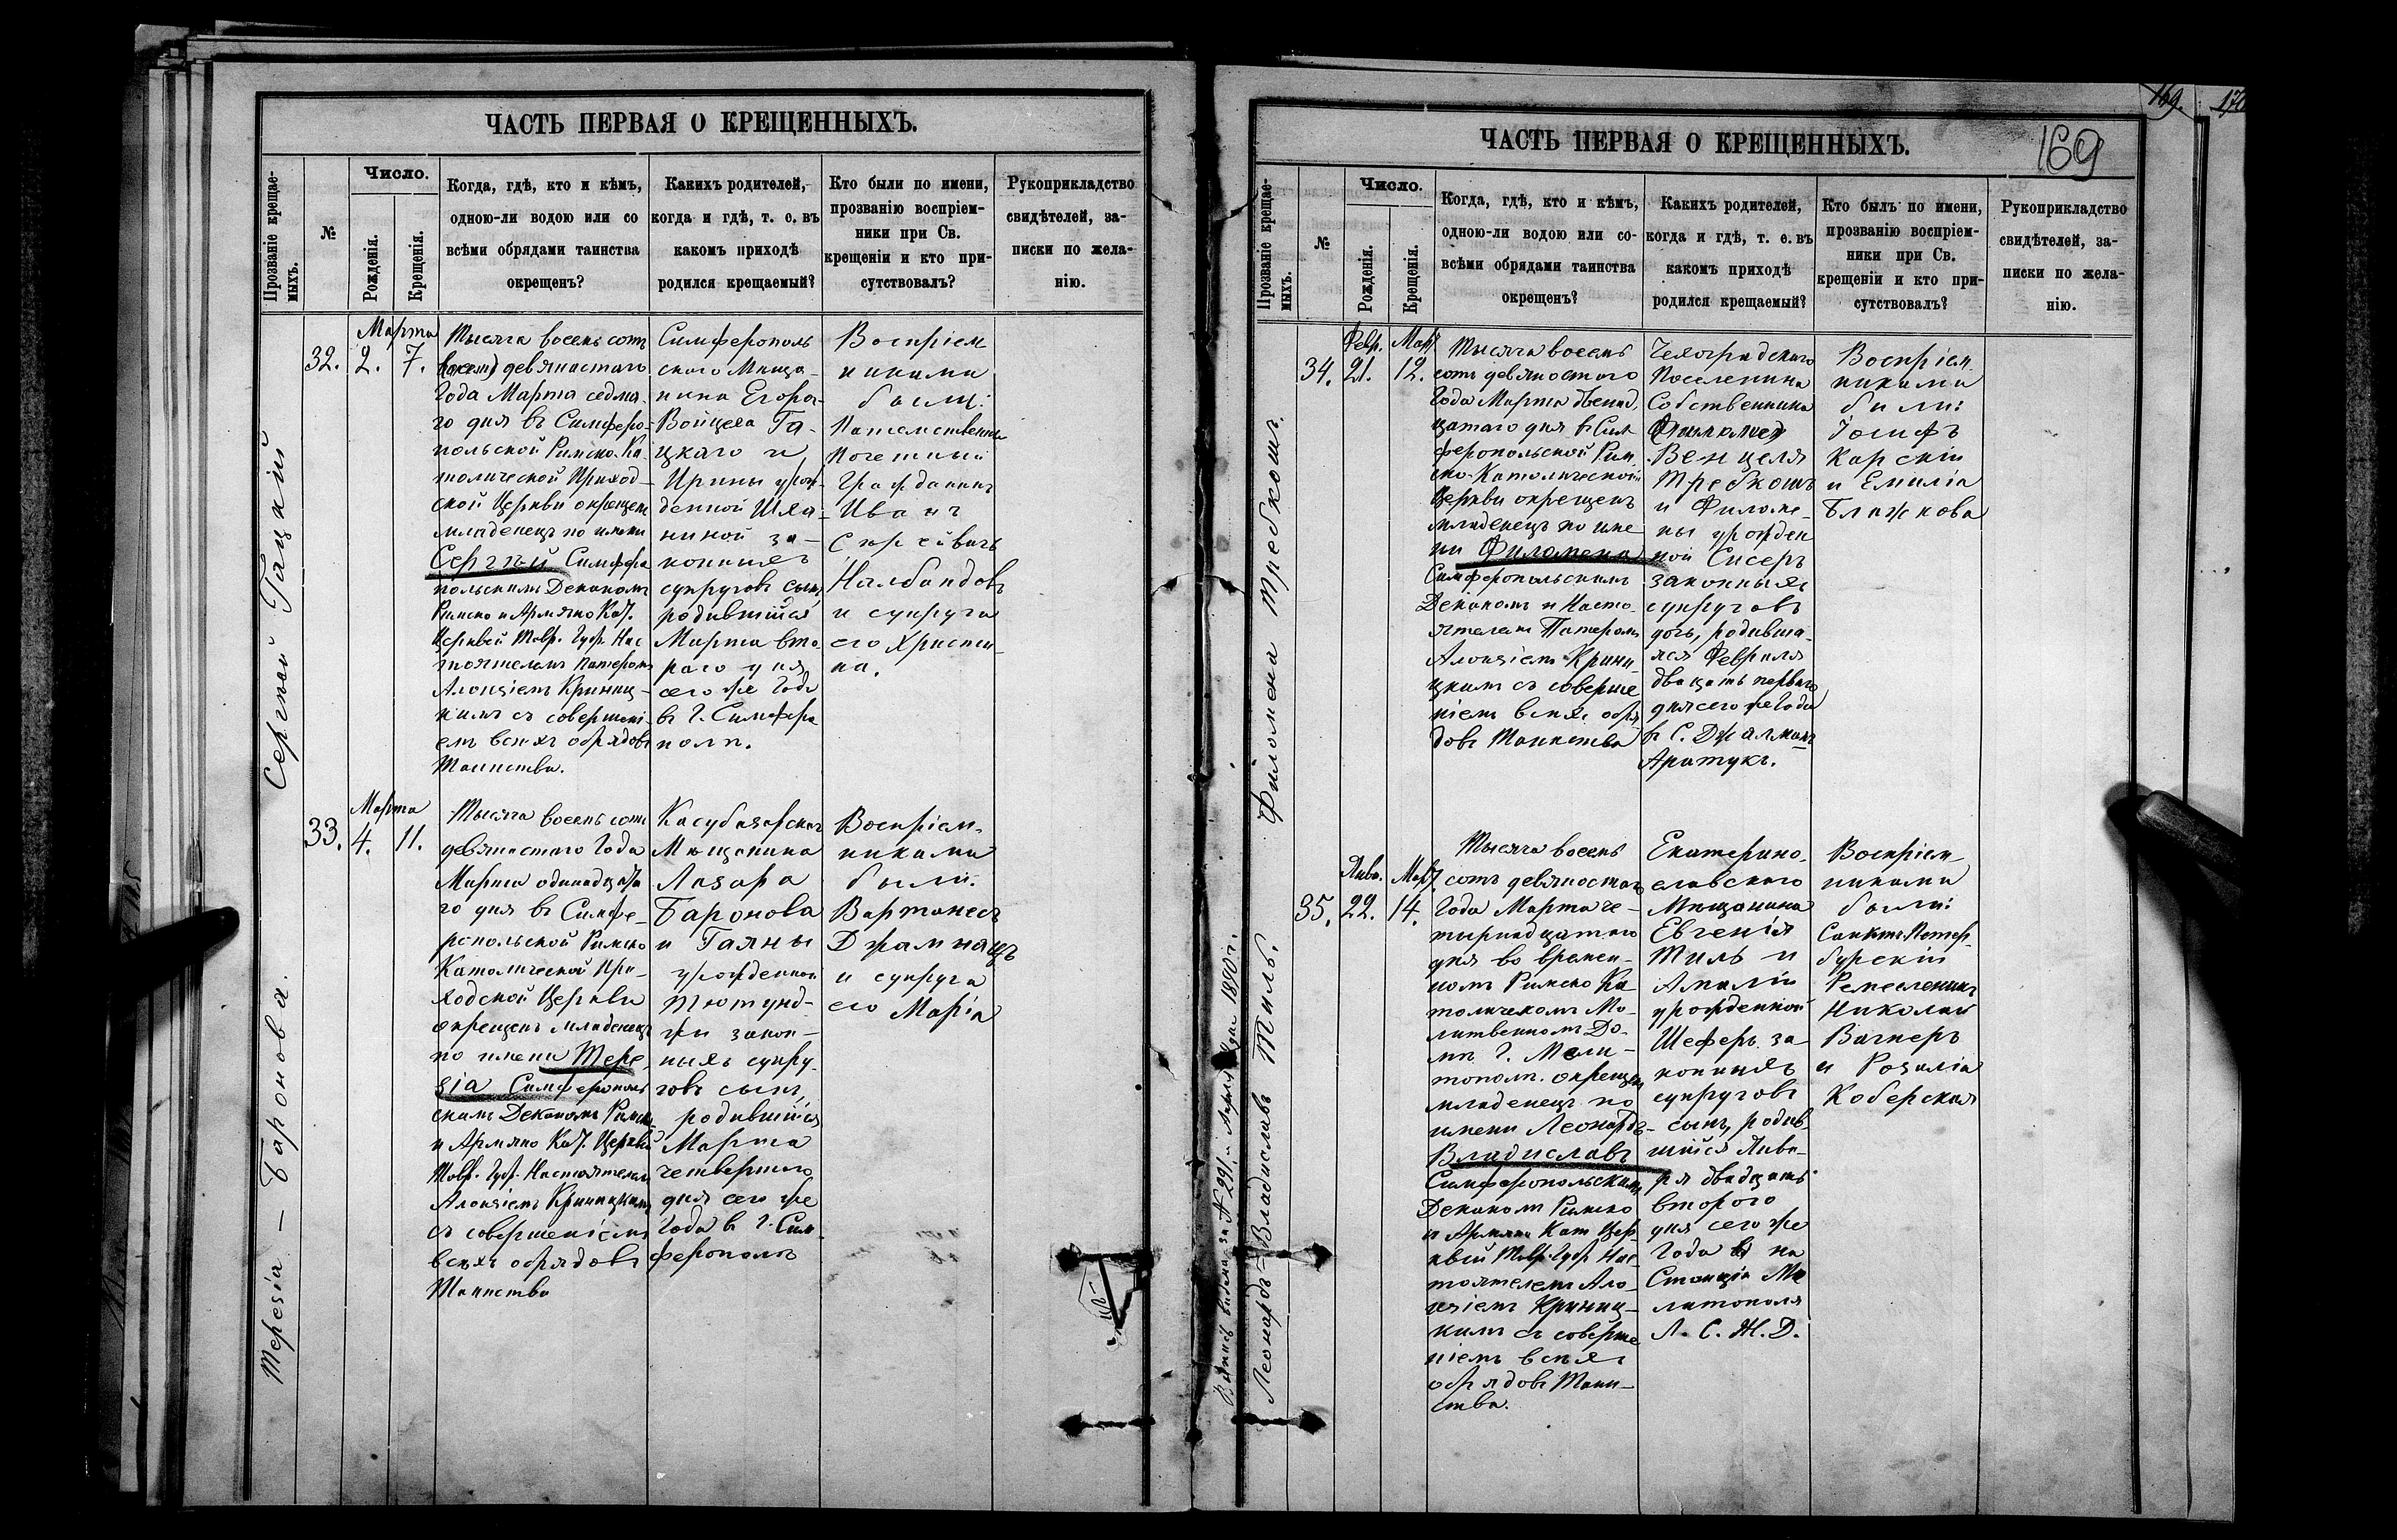 ЧАСТЬ ПЕРВАЯ О КРЕЩЕННЫХЪ.
Прозваніе крещае-
мыхъ.
№
Число.
Рожденія.
Крещенія.
Когда, гдѣ, кто и кѣмъ,
одною-ли водою или со
всѣми обрядами таинства
окрещенъ?
Какихъ родителей,
когда и гдѣ, т. е. въ
какомъ приходѣ
родился крещаемый?
Кто были по имени,
прозванію воспріем-
ники при Св.
крещеніи и кто при-
сутствовалъ?
Рукоприкладство
свидѣтелей, за-
писки по жела-
нію.
Сергѣй Гацкій
32.
Марта
2. 7.
Тысяча восемь сотъ
девяностаго
Года Марта седма-
го дня въ Симферо-
польской Римско-Ка-
толической Приход-
ской Церкви окрещенъ
младенецъ по имени
Сергѣй Симферо
польскимъ Деканомъ
Римско и Армяно Кат.
Церквей Тавр. Губ. Нас
тоятелемъ Патеромъ
Алоизіемъ Криниц-
кимъ съ совершені-
емъ всѣхъ обрядовъ
Таинства.
Симферополь
скаго Мѣща-
нина Егора-
Войцеха Га-
цкаго и
Ирины урож-
денной Шля-
ниной за-
конныхъ
супруговъ сынъ,
родившійся
Марта вто-
раго дня
сего же Года
въ Г. Симферо
полѣ.
Воспріем
никами
были:
Потомственный
Почетный
Гражданинъ
Иванъ
Сергѣевичъ
Налбандовъ
и супруга
его Христи-
на.
Терезія — Баронова.
33.
Марта
4. 11.
Тысяча восемь сотъ
девяностаго Года
Марта одинадцата
го дня въ Симфе-
ропольской Римско
Католической При-
ходской Церкви
окрещенъ младенецъ
по имени Тере-
зія Симферополь
скимъ Деканомъ Римско
и Армяно Кат. Церквей
Тавр. Губ. Настоятелемъ
Алоизіемъ Криницкимъ
съ совершеніемъ
всѣхъ обрядовъ
Таинства
Карасубазарскаго
Мѣщанина
Лазаря
Баронова
и Гаяны
урожденной
Тютунд-
жи закон-
ныхъ супру-
говъ сынъ,
родившійся
Марта
четвертаго
дня сего же
Года въ Г. Сим-
ферополѣ
Воспріем-
никами
были:
Вартанесъ
Джамнацъ
и супруга
его Марія
169. 170
169
ЧАСТЬ ПЕРВАЯ О КРЕЩЕННЫХЪ.
Прозваніе крещае-
мыхъ.
№
Число.
Рожденія.
Крещенія.
Когда, гдѣ, кто и кѣмъ,
одною-ли водою или со-
всѣми обрядами таинства
окрещенъ?
Какихъ родителей,
когда и гдѣ, т. е. въ
какомъ приходѣ
родился крещаемый?
Кто былъ по имени,
прозванію воспріем-
ники при Св.
крещеніи и кто при-
сутствовалъ?
Рукоприкладство
свидѣтелей, за-
писки по жела-
нію.
Филомена Требкошъ.
34.
Февр. Мар.
21. 12.
Тысяча восемь
сотъ девяностаго
Года Марта двенад-
цатаго дня въ Сим
феропольской Рим
ско-Католической
Церкви окрещенъ
младенецъ по име
ни Филомена
Симферопольскимъ
Деканомъ и Насто-
ятелемъ Патеромъ
Алоизіемъ Крини-
цкимъ съ соверше
ніемъ всѣхъ обря
довъ Таинства
Чехоградскаго
Поселенина
Собственника
Венцеля
Требкошъ
и Филоме-
ны урожден
ной Сисеръ
законныхъ
супруговъ
дочь, родивша-
яся Февраля
двадцать перваго
дня сего же Года
въ С. Джалманъ
Аратукъ.
Воспріем-
никами
были:
Іосифъ
Карскій
и Емилія
Блажкова
Леонардъ-Владиславъ Тиль.
35.
Янв. Мар.
22. 14.
Тысяча восемь
сотъ девяностаго
Года Марта че-
тырнадцатаго
дня во времен-
номъ Римско Ка
толическомъ Мо-
литвенномъ До-
мѣ Г. Мели-
тополѣ окрещенъ
младенецъ по
имени Леонардъ-
Владиславъ
Симферопольскимъ
Деканомъ Римско
и Армяно Кат Цер-
квей Тавр. Губ Нас-
тоятелемъ Ало-
изіемъ Криниц-
кимъ съ соверше
ніемъ всѣхъ
обрядовъ Таин-
ства.
Екатерино-
славскаго
Мѣщанина
Евгенія
Тиль и
Амаліи
урожденной
Шеферъ за-
конныхъ
супруговъ
сынъ, родив-
шійся Янва-
ря двадцать
второго
дня сего же
Года на
Станціи Ме
литополя
Л. С. Ж. Д.
Воспріем-
никами
были:
Санктъ-Петер-
бурскій
Ремесленикъ
Николай
Вагнеръ
и Розалія
Коберская